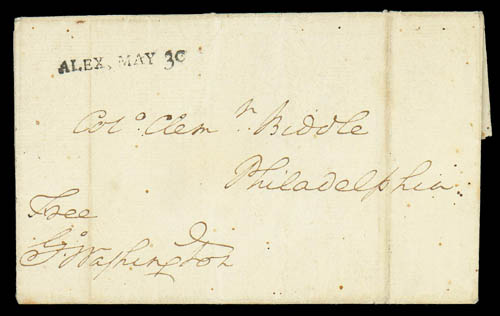 ALEX, MAY 30
Colo. Clemt. Biddle
Philadelphia
Free
Go. Washington